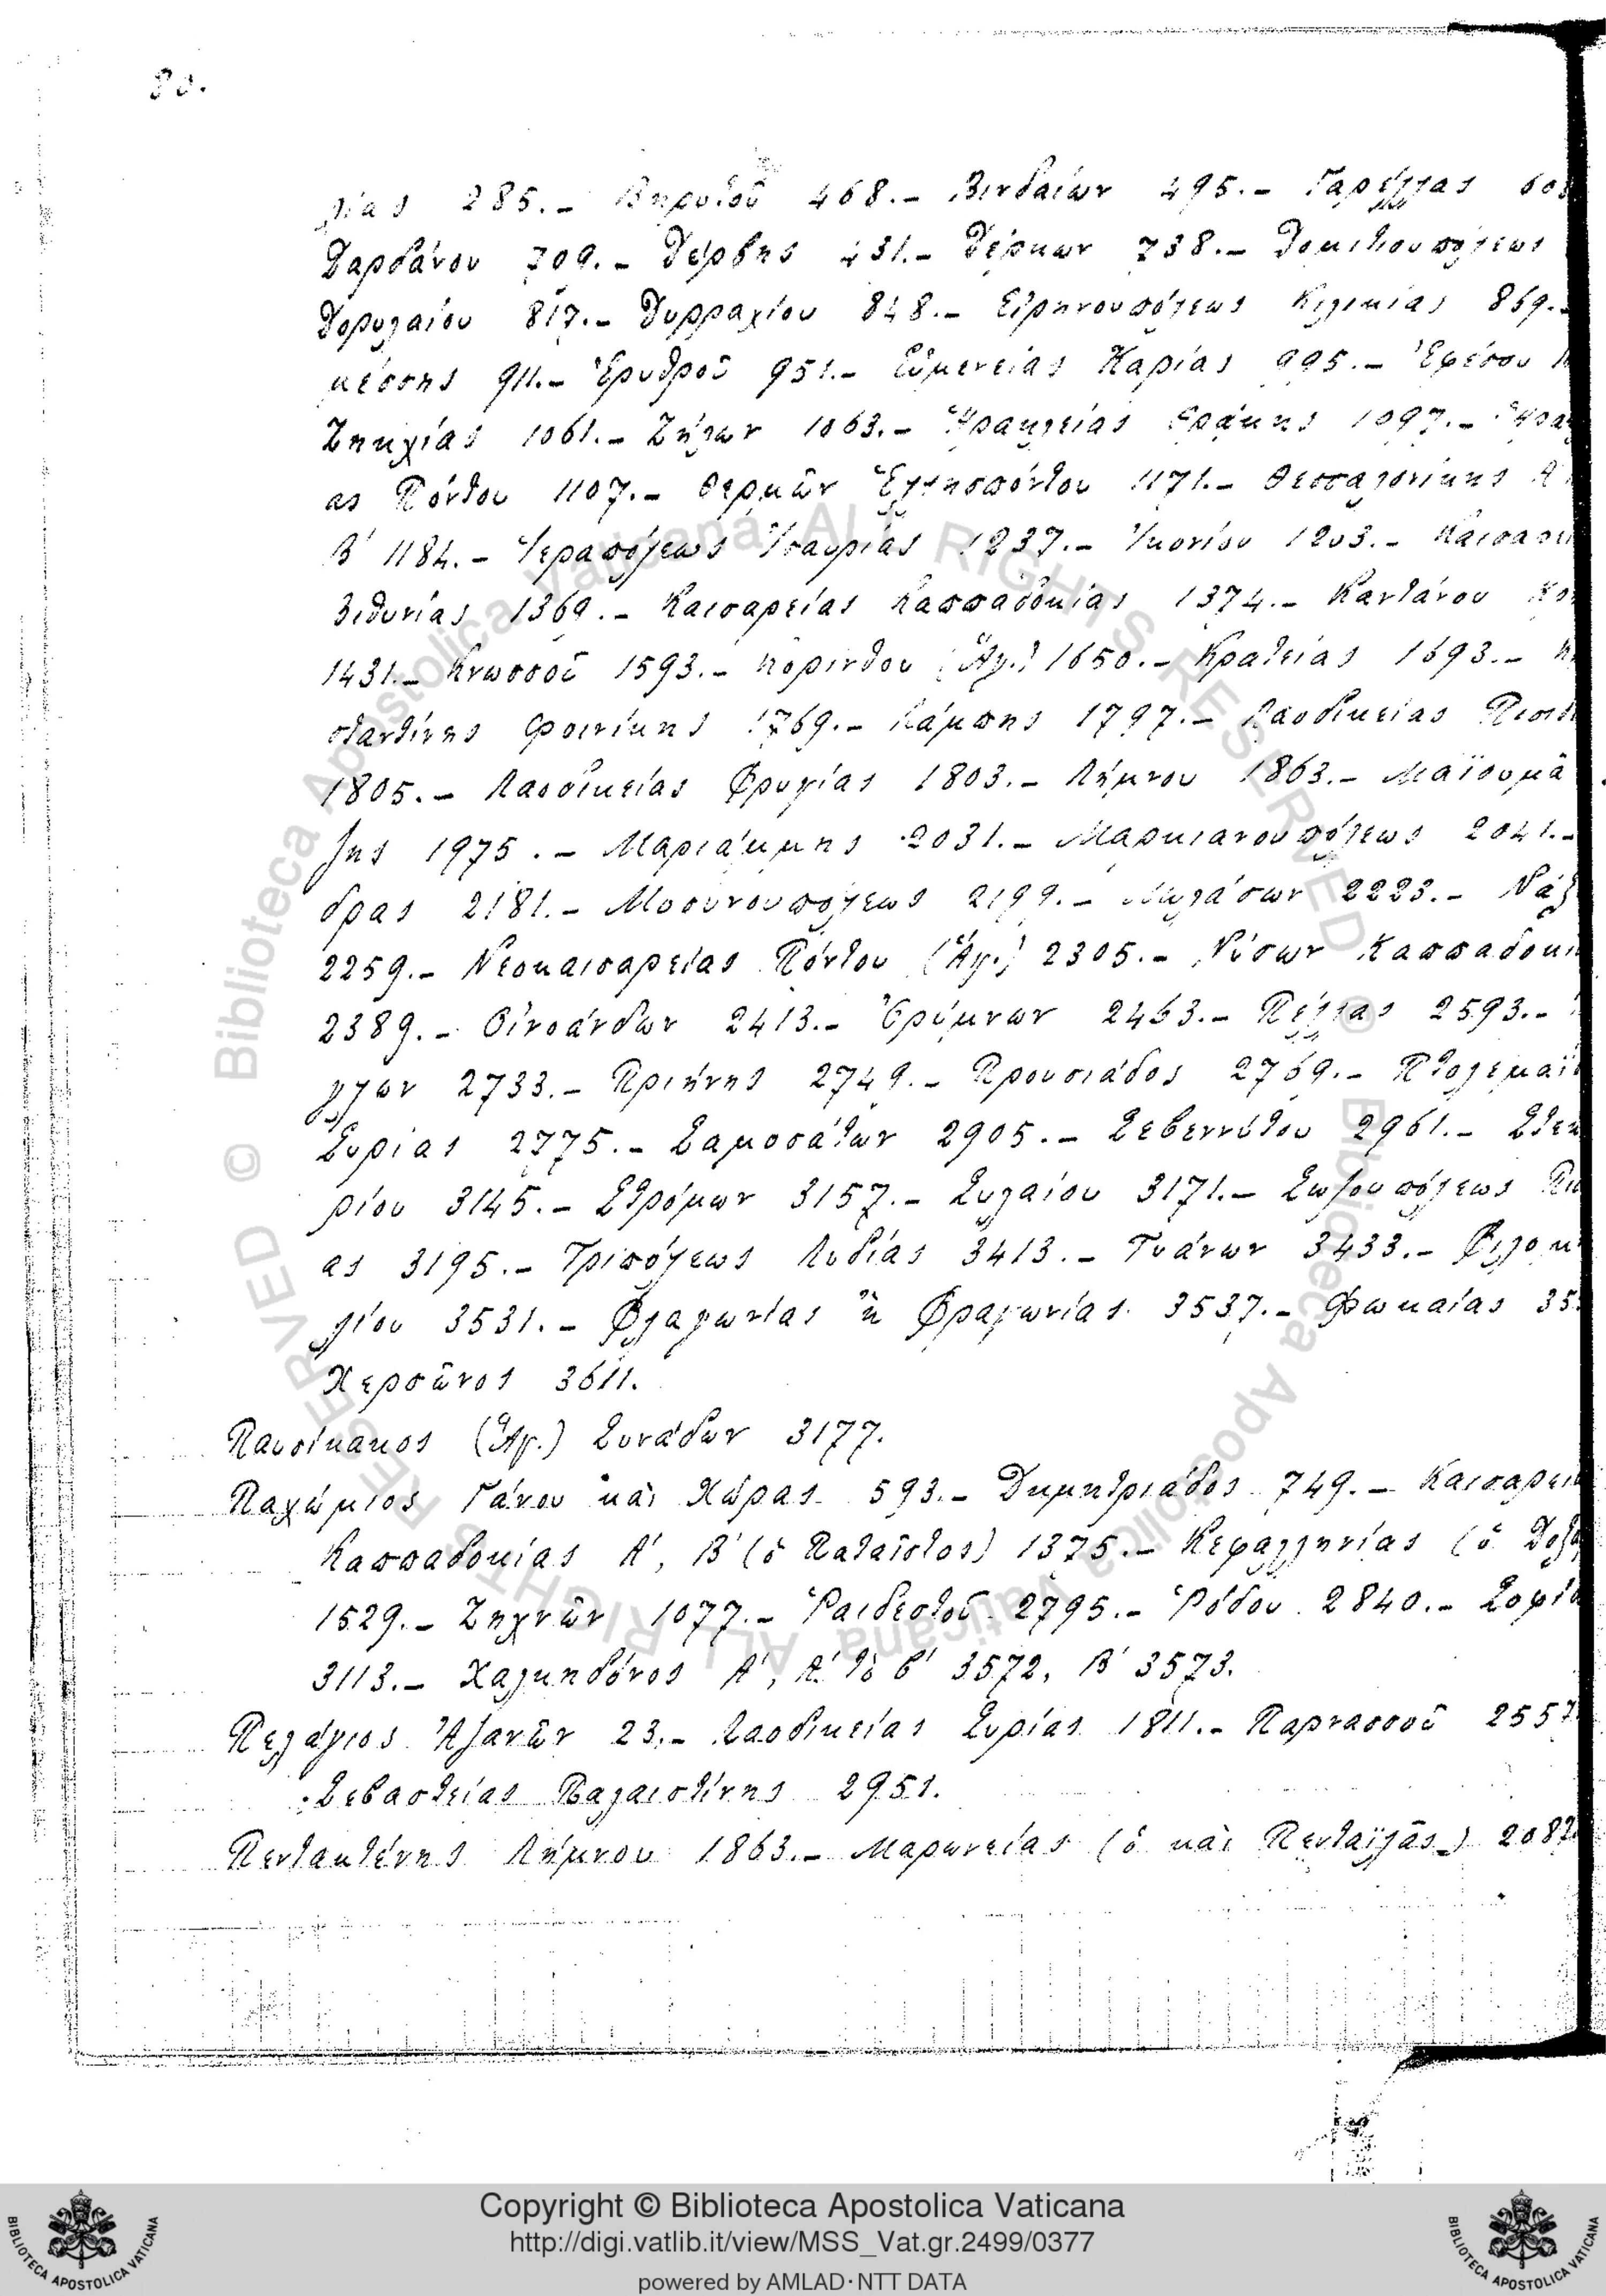 80.
λίας 285.– Βηρυτοῦ 468.– Βινδαίων 495.– Γαρέλλας
Δαρδάνου 709.– Δέρβης 731.– Δέρκων 738.– Δομιτιουπόλεως
Δορυλαίου 817.– Δυρραχίου 848.– Εἰρηνουπόλεως Κιλικίας 869.–
μέσσης 911.– Ἐρυθροῦ 951.– Εὐμενείας Καρίας 995.– Ἐφέσου
Ζηκχίας 1061.– Ζήλων 1063.– Ἡρακλείας Θράκης 1097.– Ἡρακ
ας Πόντου 1107.– Θερμῶν Ἑλλησπόντου 1171.– Θεσσαλονίκης Α
Β´ 1184.– Ἱεραπόλεως Ἰσαυρίας 1237.– Ἰκονίου 1203.– Καισαρεί
Βιθυνίας 1369.– Καισαρείας Καππαδοκίας 1374.– Καντάνου
1431.– Κνωσσοῦ 1593.– Κορίνθου (Ἁγ.) 1650.– Κρατείας 1693.–
σταντίνης Φοινίκης 1769.– Λάμπης 1797.– Λαοδικείας Πισιδ
1805.– Λαοδικείας Φρυγίας 1803.– Λήμνου 1863.– Μαϊουμᾶ
ζης 1975.– Μαριάμμης 2031.– Μαρκιανουπόλεως 2041.–
δρας 2181.– Μοσυνουπόλεως 2199.– Μυλάσων 2223.– Νάξ
2259.– Νεοκαισαρείας Πόντου (Ἁγ.) 2305.– Νύσων Καππαδοκί
2389.– Οἰνοάνδων 2413.– Ὀρύμνων 2463.– Πέλλας 2593.–
γλων 2733.– Πριήνης 2749.– Προυσιάδος 2769.– Πτολεμαΐ
Συρίας 2775.– Σαμοσάτων 2905.– Σεβεννύτου 2961.– Στεκ
ρίου 3145.– Στρόμων 3157.– Συλαίου 3171.– Σωζουπόλεως
ας 3195.– Τριπόλεως Λυδίας 3413.– Τυάνων 3433.– Φιλομ
λίου 3531.– Φλαγωνίας ἢ Φραγωνίας 3537.– Φωκαίας 35
Χερσῶνος 3611.
Παυσίκακος (Ἁγ.) Συνάδων 3177.
Παχώμιος Γάνου καὶ Χώρας 593.– Δημητριάδος 749.– Καισαρεί
Καππαδοκίας Α´, Β´ (ὁ Παταῖστος) 1375.– Κεφαλληνίας (ὁ Δοξα
1529.– Ζηχνῶν 1077.– Ῥαιδεστοῦ 2795.– Ῥόδου 2840.– Σοφία
3113.– Χαλκηδόνος Α´, Α´ τὸ β´ 3572, Β´ 3573.
Πελάγιος Ἀζανῶν 23.– Λαοδικείας Συρίας 1811.– Παρνασσοῦ 2557
Σεβαστείας Παλαιστίνης 2951.
Πεντακτένης Λήμνου 1863.– Μαρωνείας (ὁ καὶ Πενταϊζᾶς) 2087
© Biblioteca Apostolica Vaticana ALL RIGHTS RESERVED © Biblioteca Apostolica Vaticana ALL RIGHTS RESERVED
Copyright © Biblioteca Apostolica Vaticana
http://digi.vatlib.it/view/MSS_Vat.gr.2499/0377
powered by AMLAD·NTT DATA
BIBLIOTECA APOSTOLICA VATICANA
BIBLIOTECA APOSTOLICA VATICANA